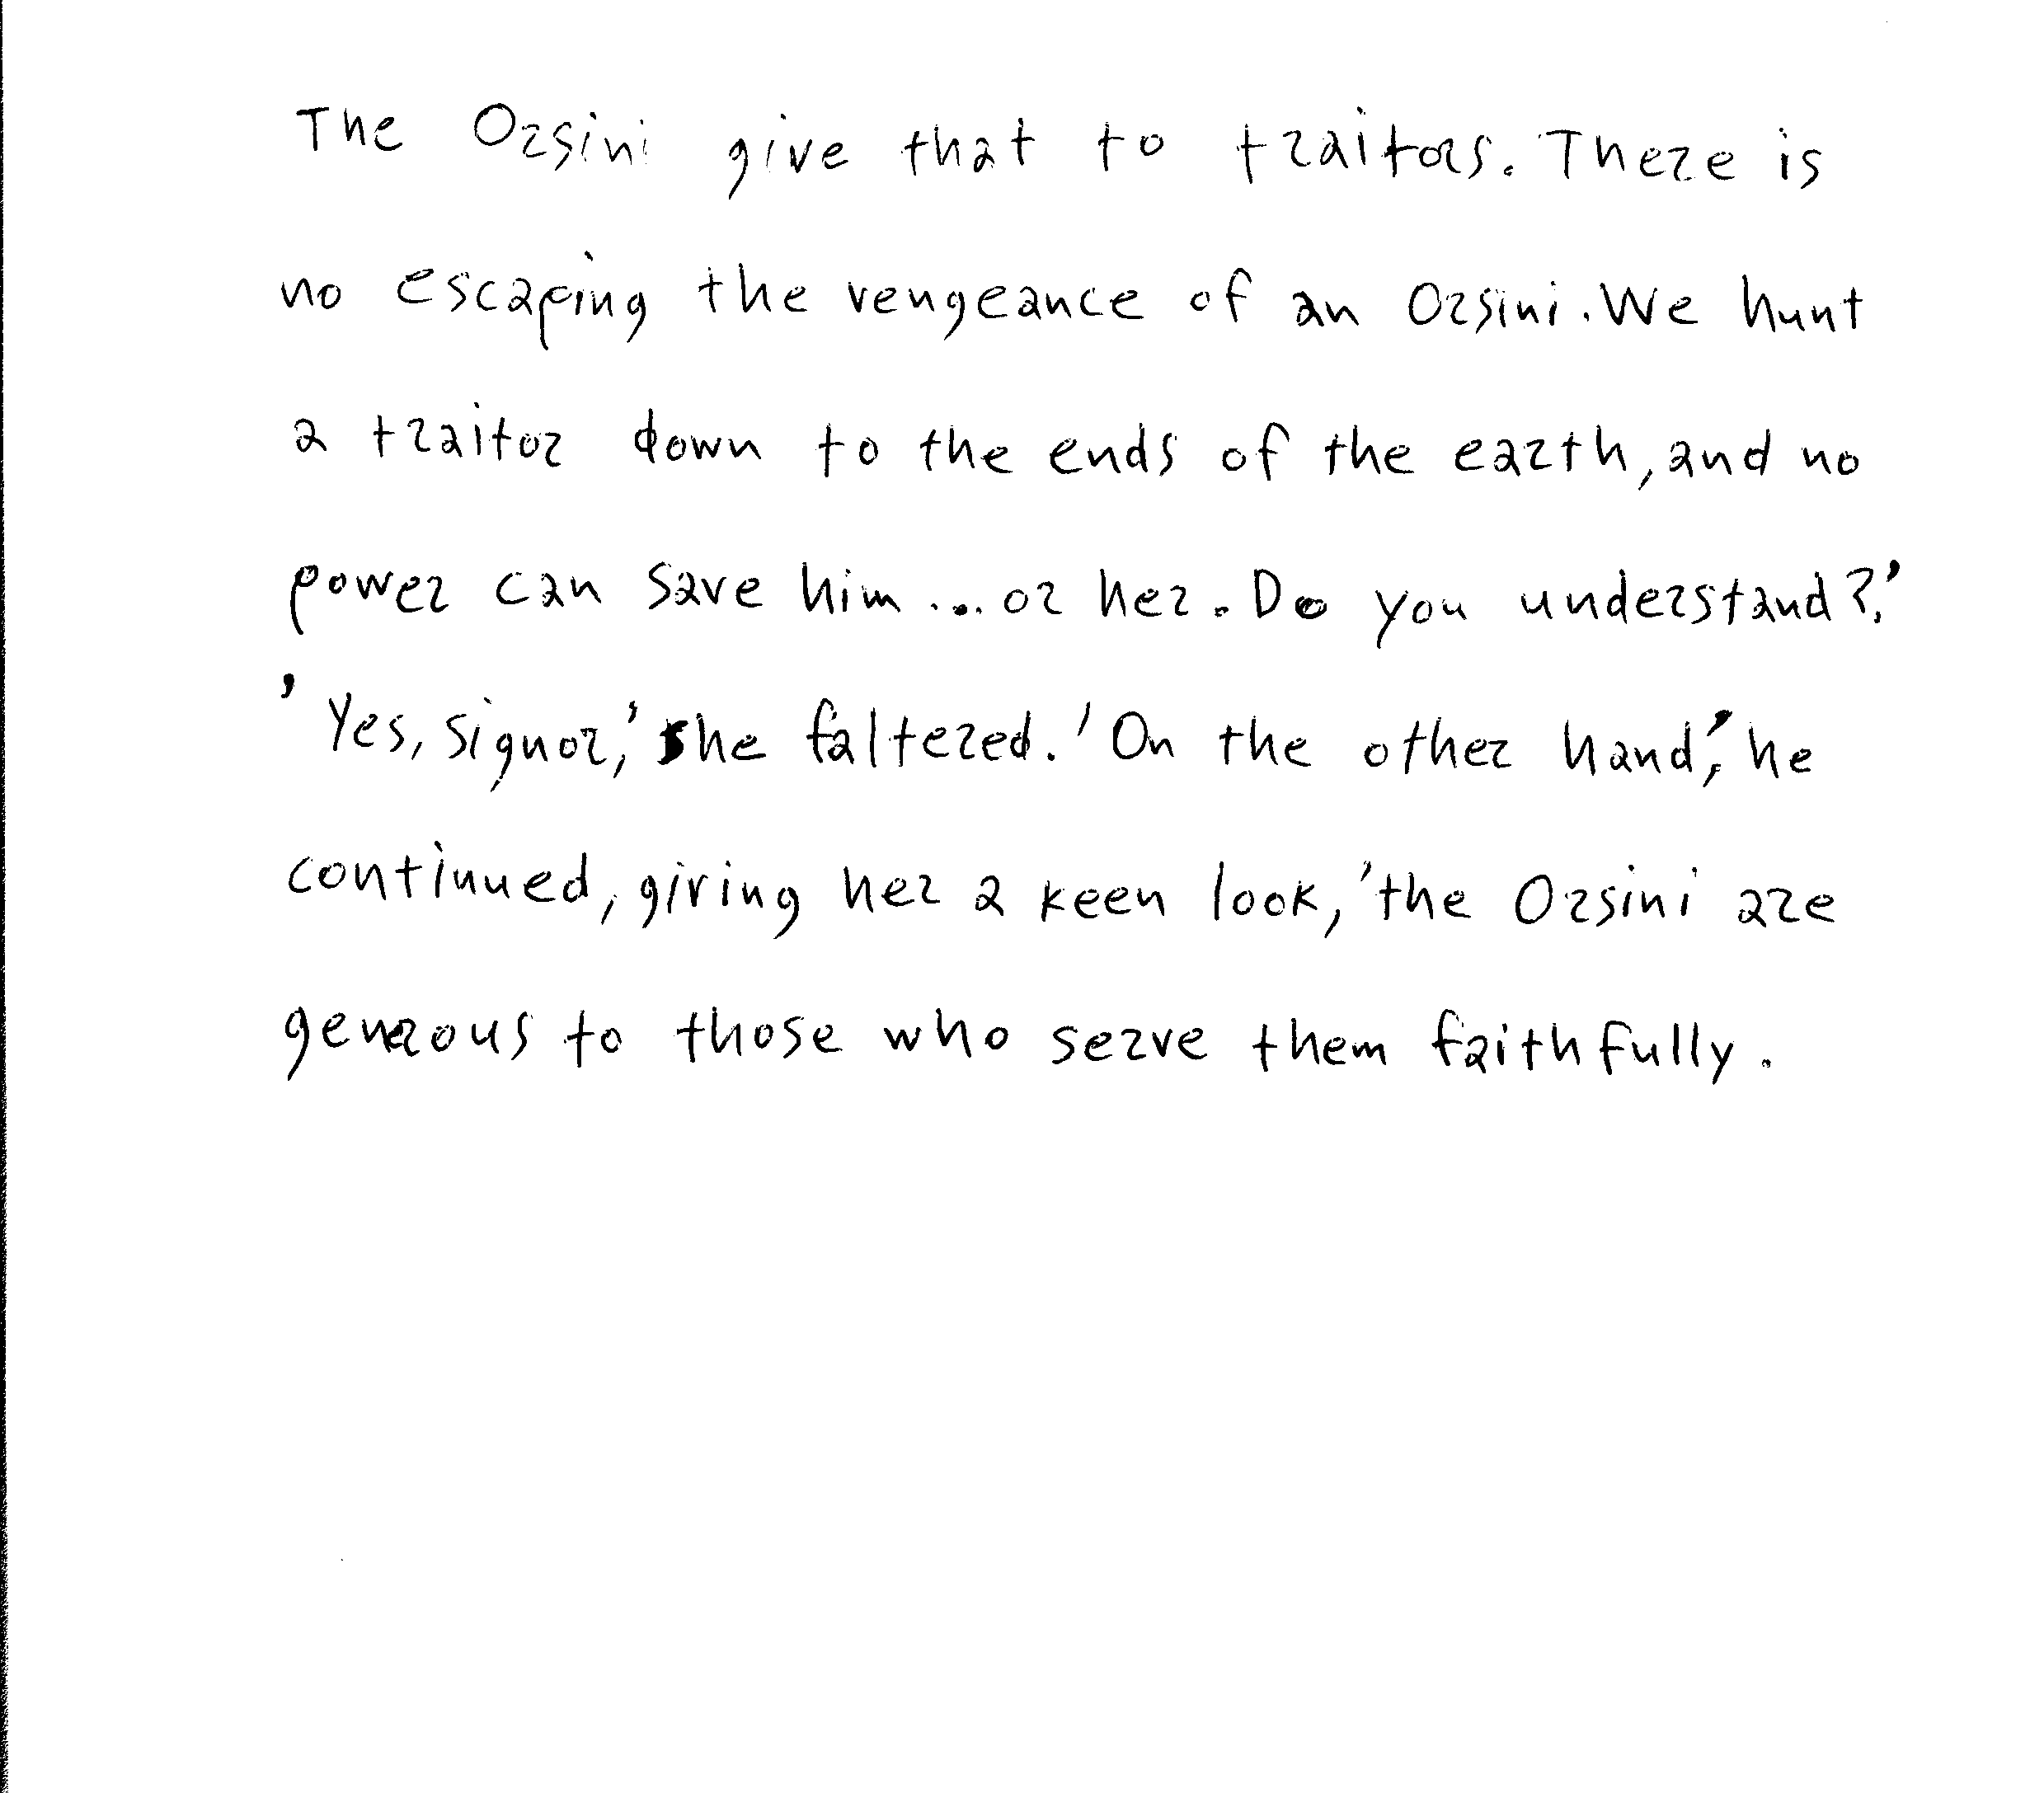 The Orsini give that to traitors. There is
no escaping the vengeance of an Orsini. We hunt
a traitor down to the ends of the earth, and no
power can save him ... or her. Do you understand?'
'Yes, signor,' she faltered. 'On the other hand,' he
continued, giving her a keen look, 'the Orsini are
generous to those who serve them faithfully.